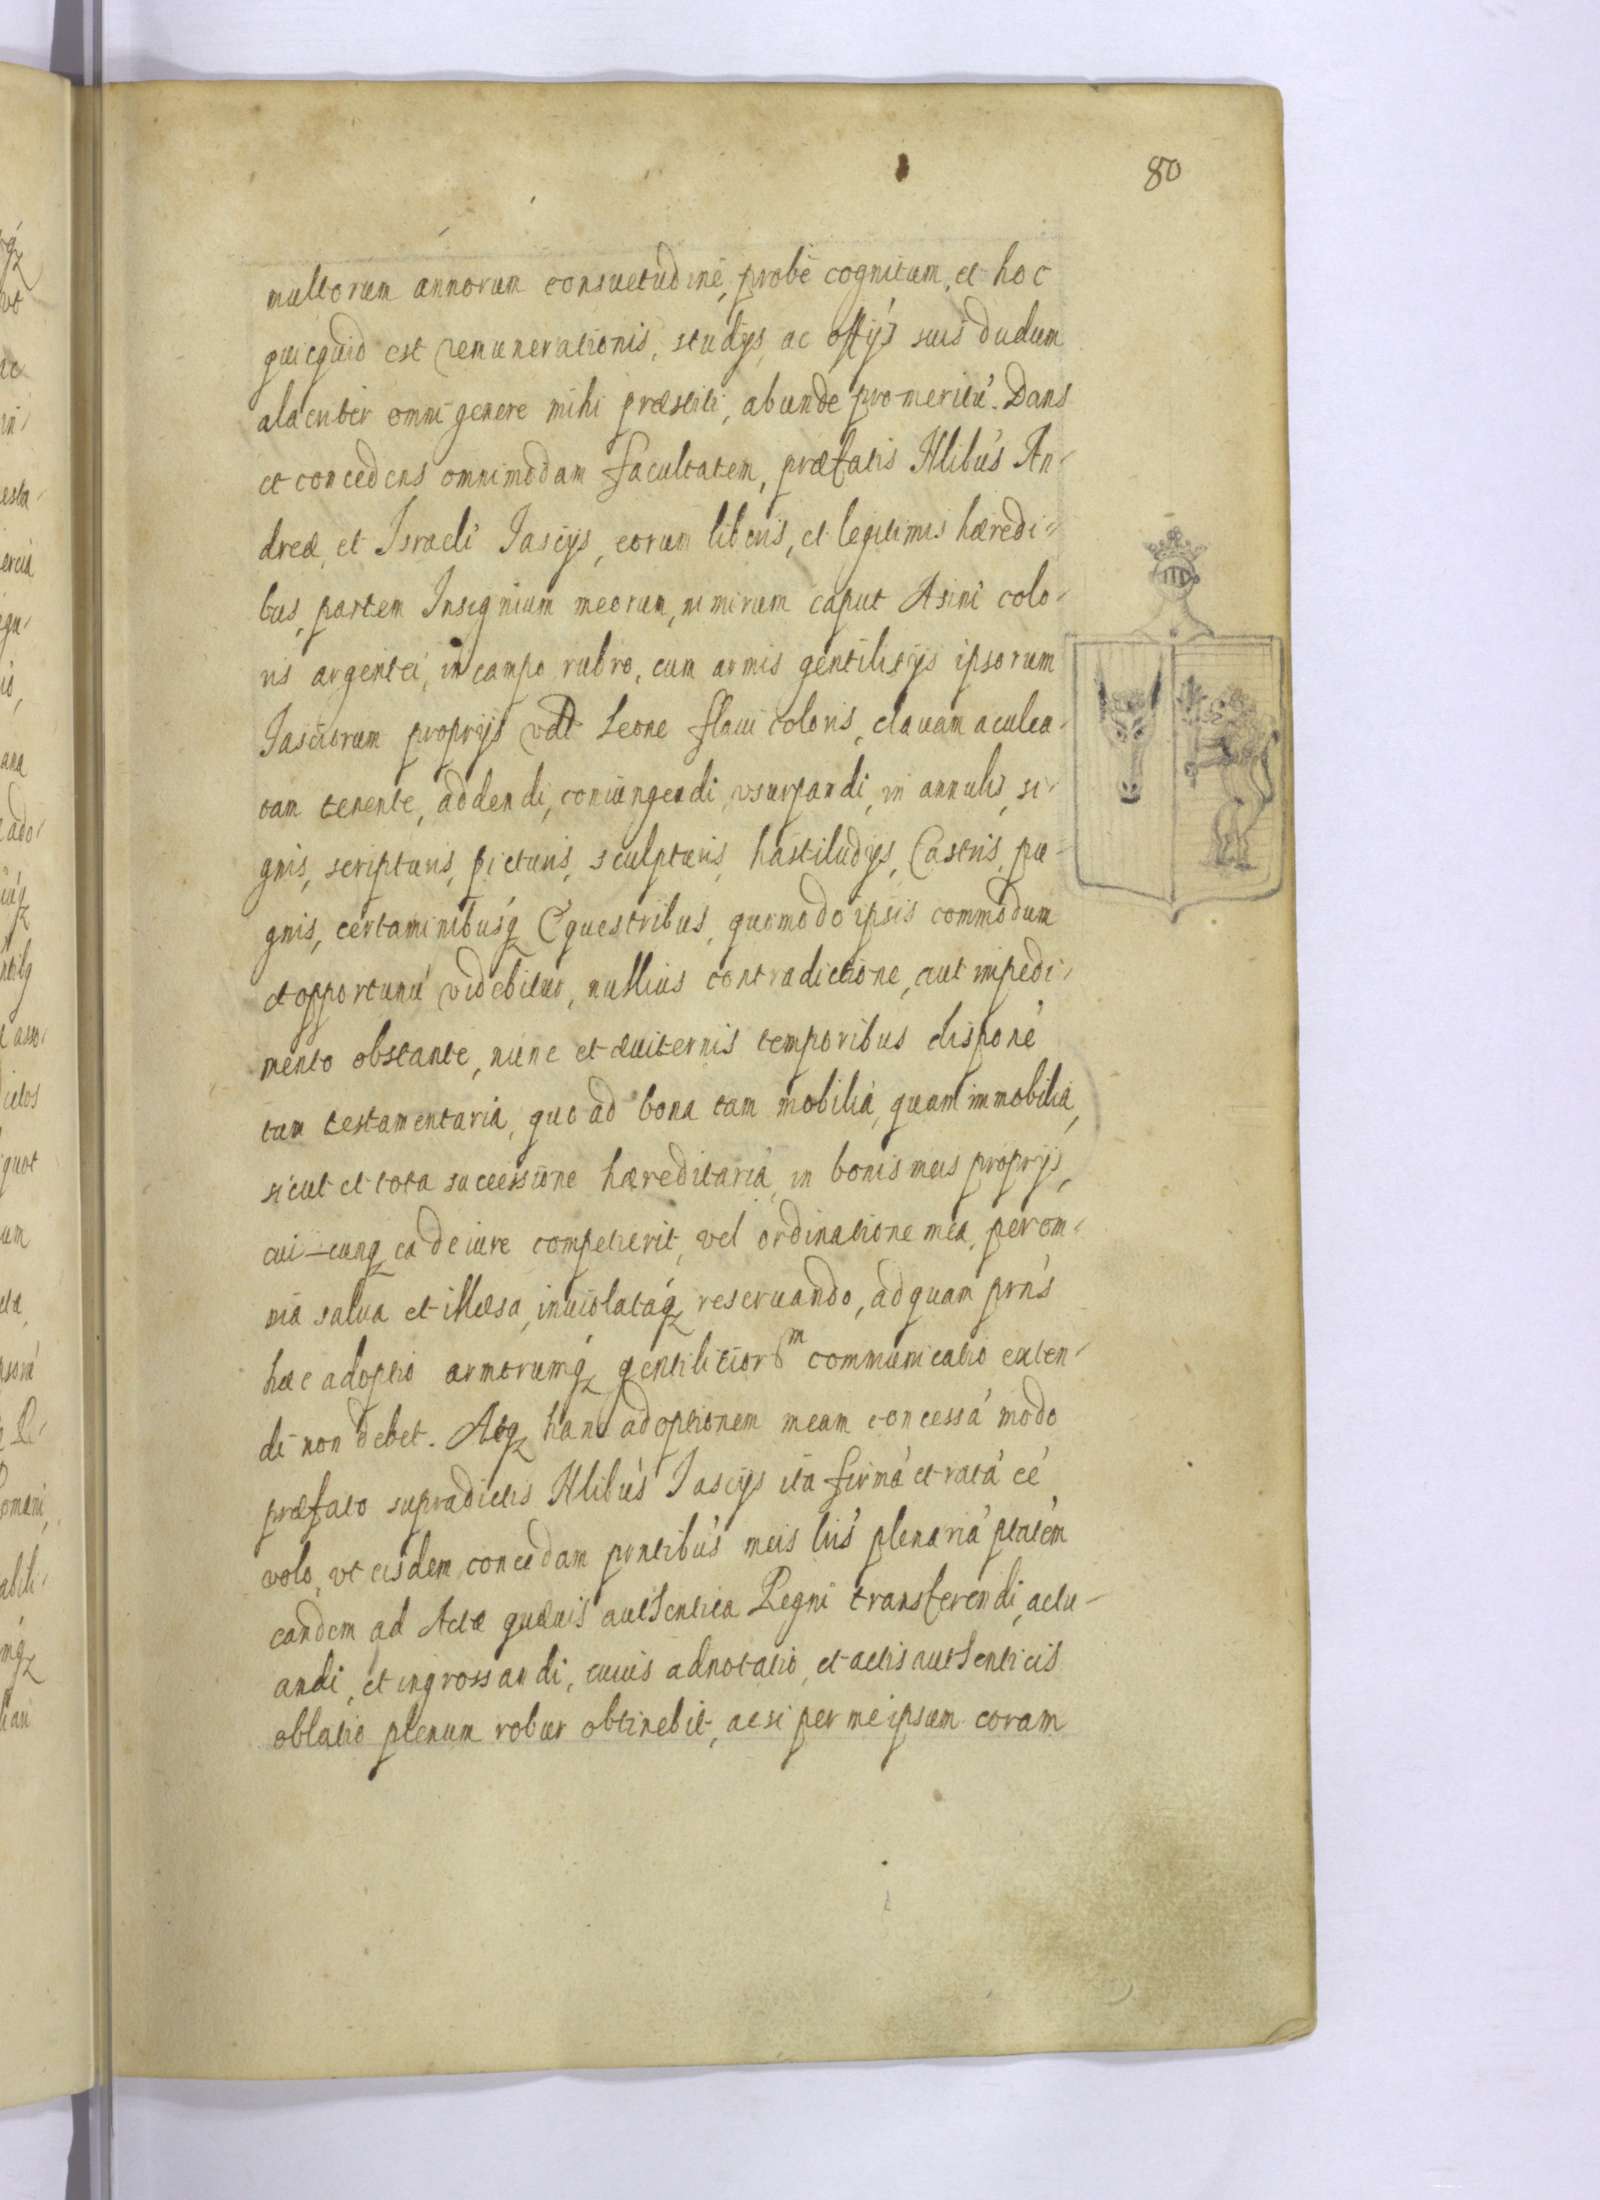 80
multorum annorum consuetudine, probè cognitum, et hoc
quicquid est remunerationis, studijs, ac offijs suis dudum
alacriter omni genere mihi præstiti, abunde promeritú. Dans
et concedens omnimodam facultatem, præfatis Illibús An-
dreæ, et Israeli Jascijs, eorum liberis, et legitimis hæredi-
bus, partem Insignium meorum, nimirum caput Asini colo-
ris argentei, in campo rubro, cum armis gentilitijs ipsorum
Jasciorum proprijs vdlt Leone flaui coloris, clauam aculea-
tam tenente, addendi, coniungendi, vsurpandi, in annulis, si-
gnis, scripturis, picturis, sculpturis, hastiludijs, Castris, pu-
gnis, certaminibusq Equestribus, quomodo ipsis commodum
et opportunú videbitur, nullius contradictione, aut impedi-
mento obstante, nunc et æuiternis temporibus disponé
tum testamentaria, quo ad bona tam mobilia, quam immobilia,
sicut et tota successione hæreditaria, in bonis meis proprijs,
cui-cunq ea de iure competierit, vel ordinatione mea, per om-
nia salua et illæsa, inuiolataq reseruando, ad quam prńs
hæc adoptio armorumq gentilitiorum communicatio exten-
di non debet. Atq hanc adoptionem meam concessá modo
præfato supradictis Illibús Jascijs ita firmá et ratá eé
volo, vt eisdem concedam pŕntibus meis lris plenariá ptatem
eandem ad Acta quæuis authentica Regni transferendi, actu-
andi, et ingrossandi, cuius adnotatio, et actis authenticis
oblatio plenum robur obtinebit, ac si per me ipsum coram